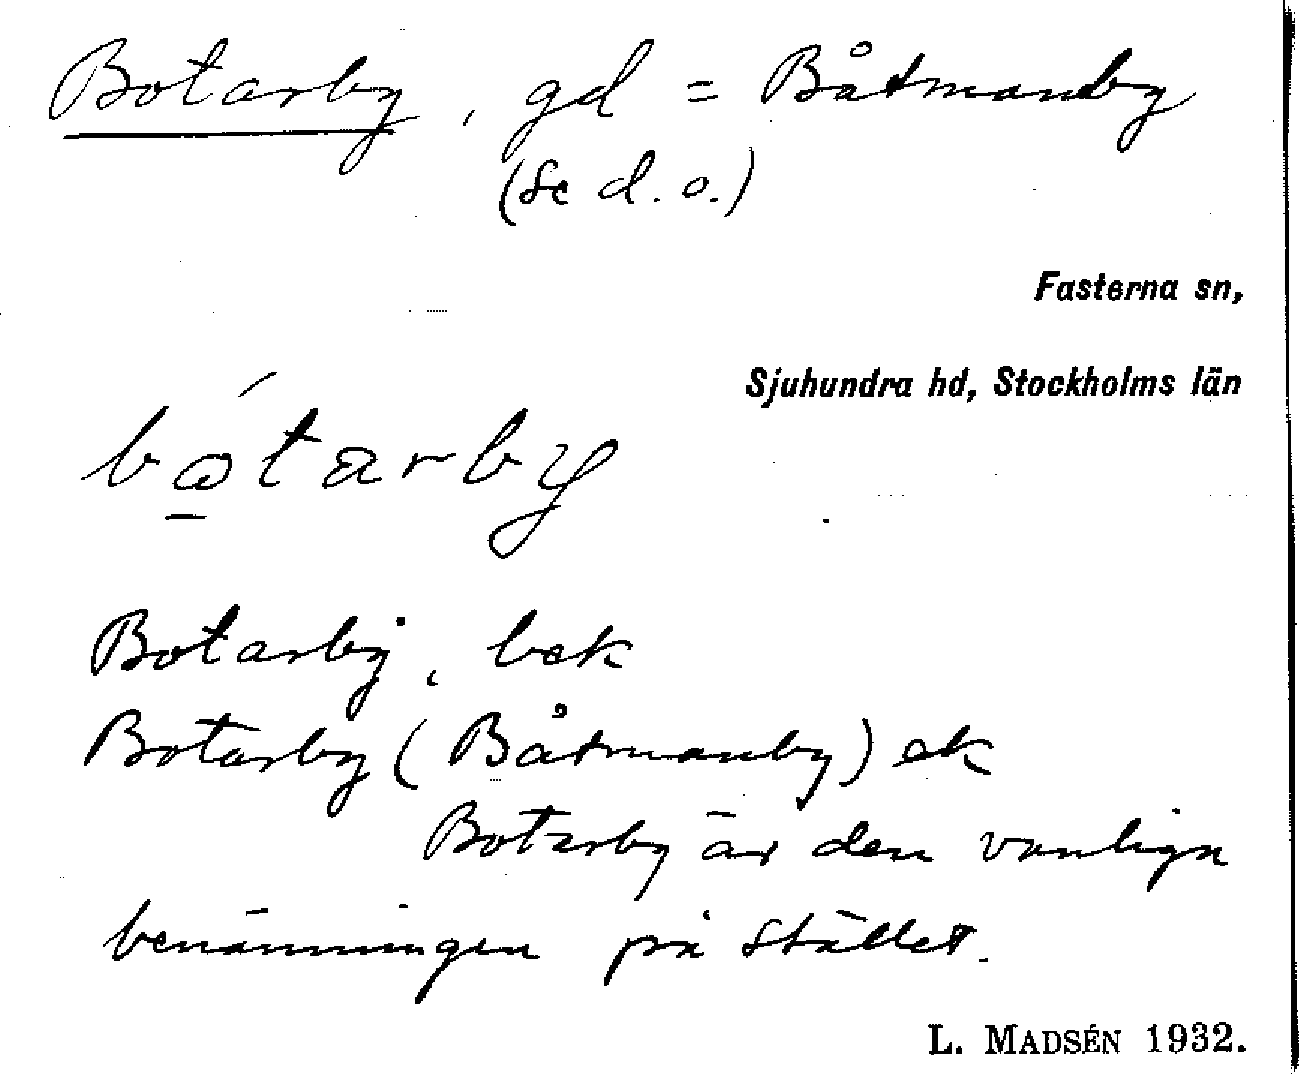 Botarby, gd = Båtmanby
(se d.o.)
Fasterna sn,
Sjuhundra hd, Stockholms län
bó̲tarby
Botarby, bek
Botarby (Båtmanby) ek
Botarby är den vanliga
benämningen på stället.
L. MADSÉN 1932.